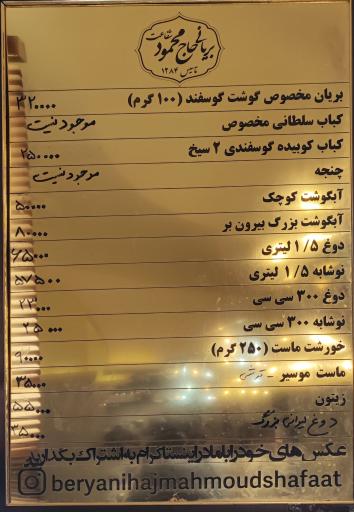 بریانی حاج محمود شفاعت
تاسیس ۱۲۸۴
بریان مخصوص گوشت گوسفند (۱۰۰ گرم) ۳۲۰۰۰۰
کباب سلطانی مخصوص موجود نیست
کباب کوبیده گوسفندی ۲ سیخ ۲۵۰۰۰۰
چنجه موجود نیست
آبگوشت کوچک ۵۰۰۰۰
آبگوشت بزرگ بیرون بر ۸۰۰۰۰
دوغ ۱/۵ لیتری ۶۵۰۰۰
نوشابه ۱/۵ لیتری
دوغ ۳۰۰ سی سی ۲۳۰۰۰
نوشابه ۳۰۰ سی سی ۲۵۰۰۰
خورشت ماست (۲۵۰ گرم) ۹۰۰۰۰
ماست موسیر - ترشی ۳۵۰۰۰
زیتون ۵۵۰۰۰
دوغ لیوانی بزرگ ۳۵۰۰۰
عکس های خود را با ما در اینستاگرام به اشتراک بگذارید
beryanihajmahmoudshafaat